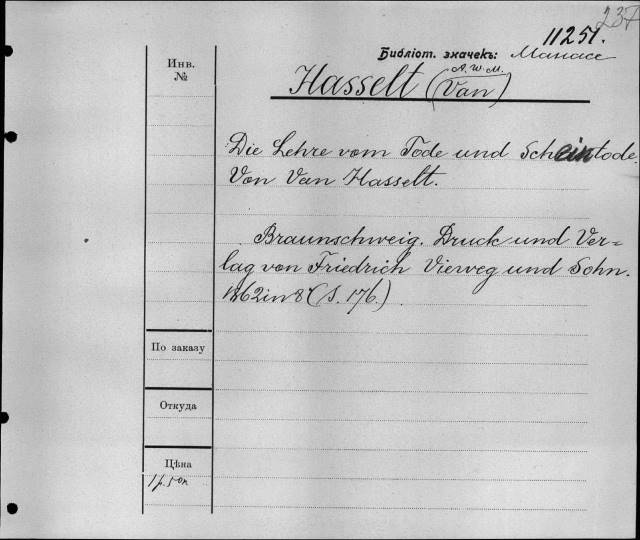 237
11251.
Библіот. значекъ: Манасс
Инв.
№
Hasselt (Van)
A. W. M.
Die Lehre vom Tode und Scheintode.
Von Van Hasselt.
Braunschweig. Druck und Ver-
lag von Friedrich Vieweg und Sohn.
1862 in 8° (S. 176.)
По заказу
Откуда
Цѣна
1 р. 50 к